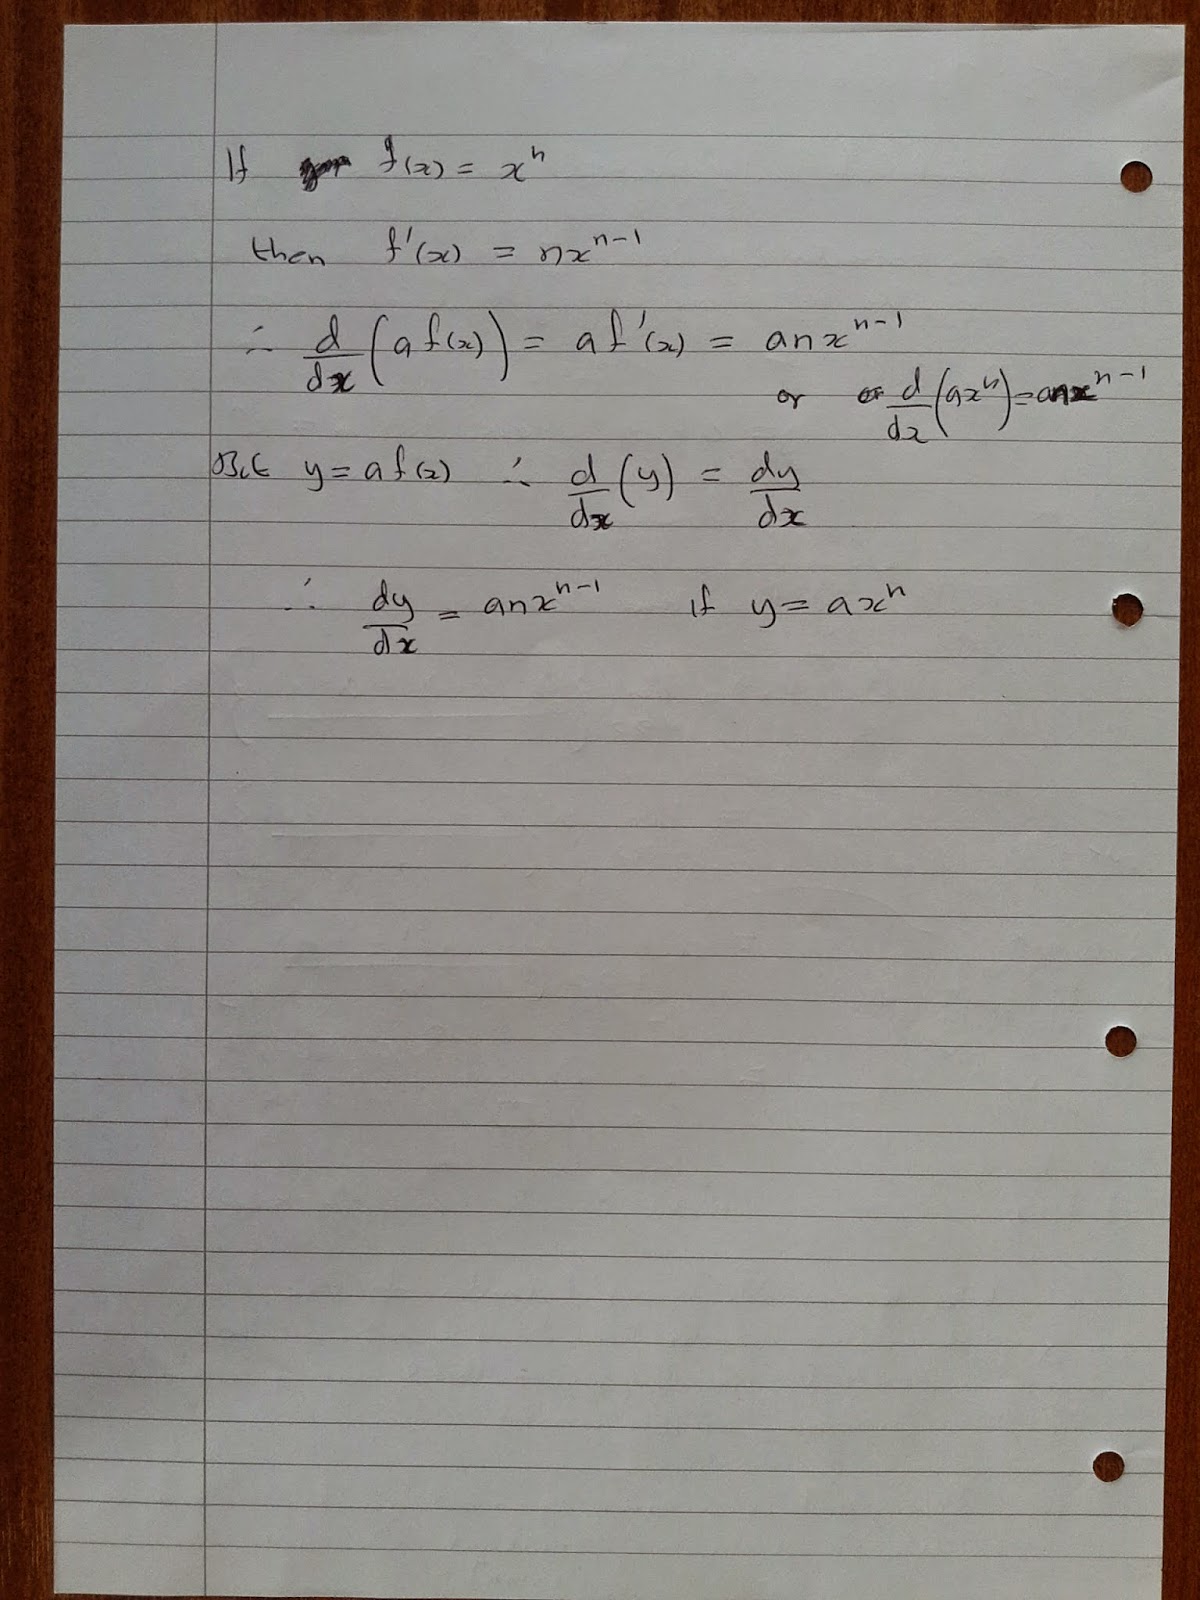 If f(x) = xⁿ
then f'(x) = nxⁿ⁻¹
∴ d/dx (a f(x)) = a f'(x) = anxⁿ⁻¹
or d/dx (axⁿ) = anxⁿ⁻¹
But y = a f(x) ∴ d/dx (y) = dy/dx
∴ dy/dx = anxⁿ⁻¹ if y = axⁿ